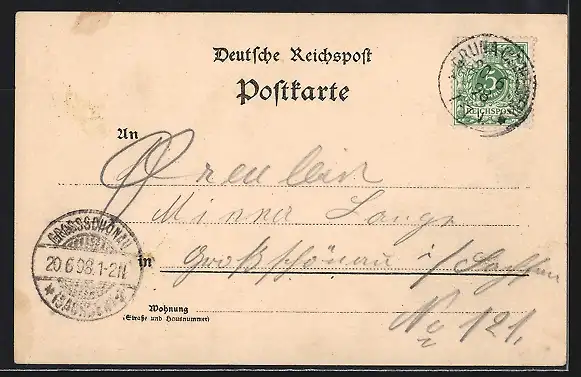 Deutsche Reichspost
Postkarte
5
REICHSPOST
An
Fräulein
Minna Lange
in Großschönau i/Sachsen
Wohnung
(Straße und Hausnummer)
No 121.
GROSSSCHÖNAU
20 6 98. 1-2N
* (SACHSEN) *